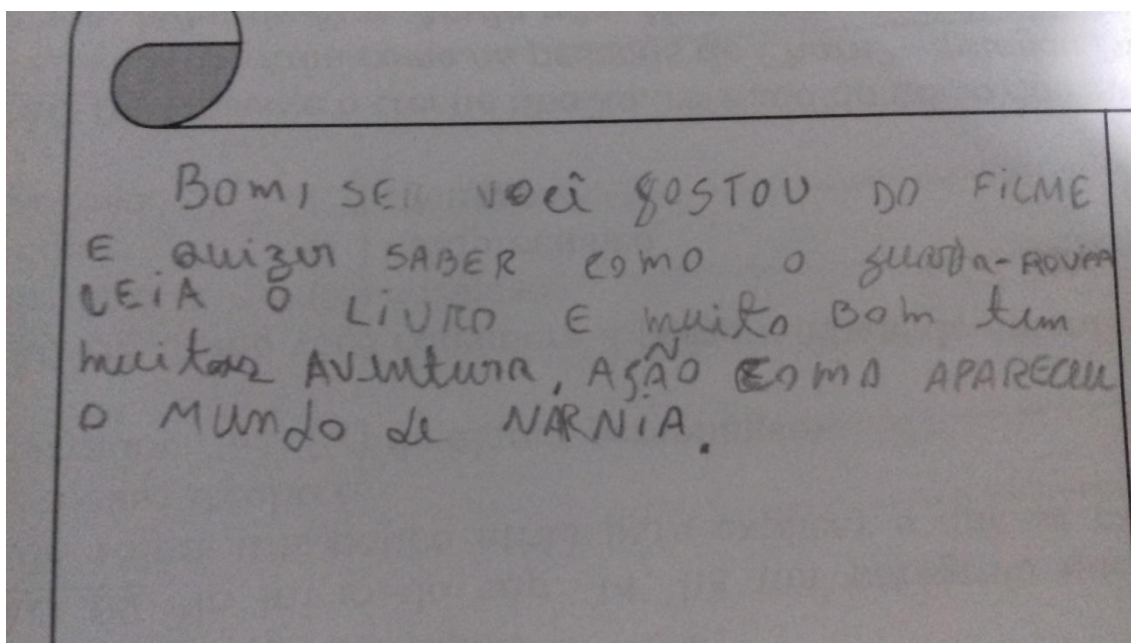 Bom, SER você gostou DO FiLME
E quizer SABER como o guarda-ROUPA
LEiA O LiVRO E muito Bom tem
muitas AVentura, AÇÃO COMO APARECEU
O MUndo de NÁRNiA.